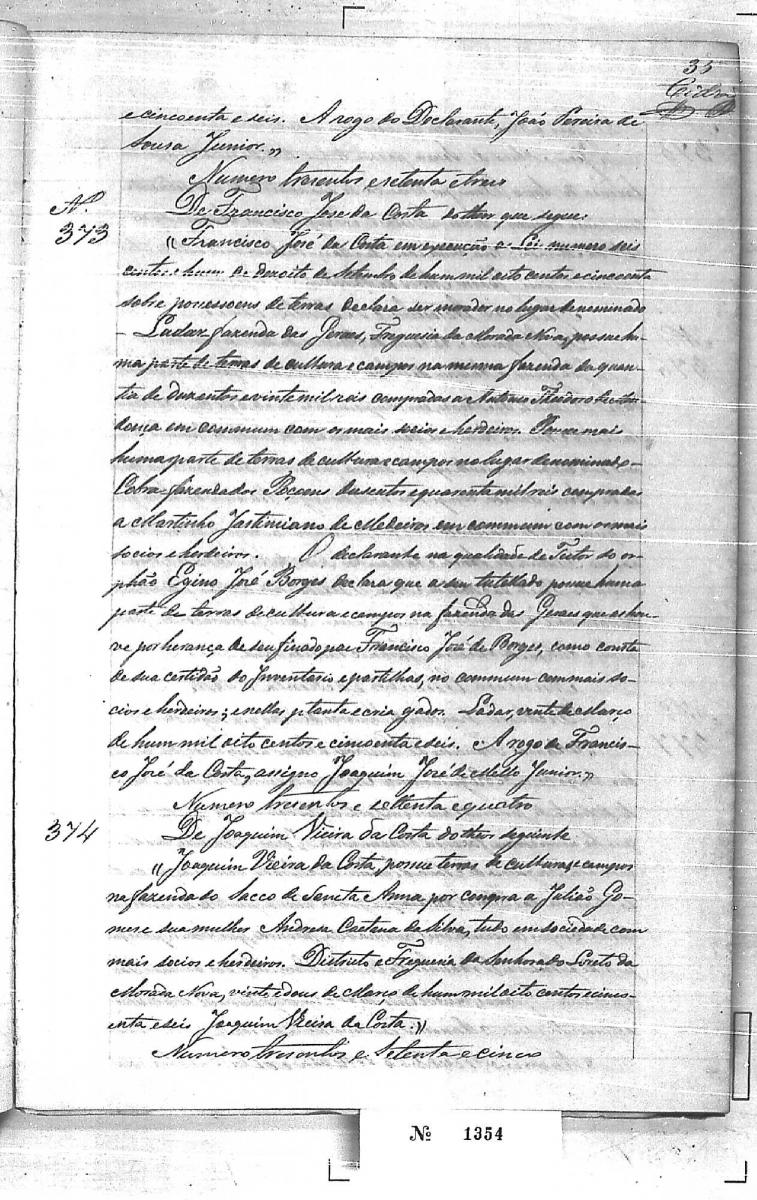 35
e cincoenta e seis. A rogo do Declarante, João Pereira de
Sousa Junior.,,
Numero tresentos e setenta e tres
Nº
373
De Francisco José da Costa do theor que segue
"Francisco José da Costa em execução a Lei numero seis
centos e hum de dezoito de Setembro de hum mil oito centos e cincoenta
sobre possessoens de terras declara ser morador no lugar denominado
- Ladar fazenda das Geraes, Freguesia da Morada Nova, possue hu-
ma parte de terras de cultura e campos na mesma fazenda da quan-
tia de duzentos e vinte mil reis compradas a Antonio Theodoro de
em commum com os mais socios e herdeiros. Possue mais
huma parte de terras de cultura e campos no lugar denominado
Cobra fazenda dos Poçoens duzentos e quarenta mil reis compradas
a Martinho Jastimiano de Medeiros em commum com os mais
socios e herdeiros. O declarante na qualidade de Tutor do or-
phão Egino José Borges declara que a seu tutellado possue huma
parte de terras de cultura e campos na fazenda das Geraes que as hou-
ve por herança de seu finado pae Francisco José de Borges, como consta
de sua certidão do Inventario e partilhas, no commum com mais so-
cios e herdeiros; e nellas planta e cria gados. Ladar, vinte de Março
de hum mil oito centos e cincoenta e seis. A rogo de Francis-
co José da Costa, assigno Joaquim José de Mello Junior.,,
Numero tresentos e settenta e quatro
374
De Joaquim Vieira da Costa do theor seguinte
"Joaquim Vieira da Costa, possue terras de cultura, e campos
na fazenda do Sacco de Sancta Anna por compra a Julião Go-
mes e sua mulher Andresa Caetana da Silva, tudo em sociedade com
mais socios e herdeiros. Districto e Freguesia da Senhora do Loreto da
Morada Nova, vinte e dous de Março de hum mil oito centos e cinco-
enta e seis Joaquim Vieira da Costa.,,
Numero tresentos e Setenta e cinco
Nº 1354